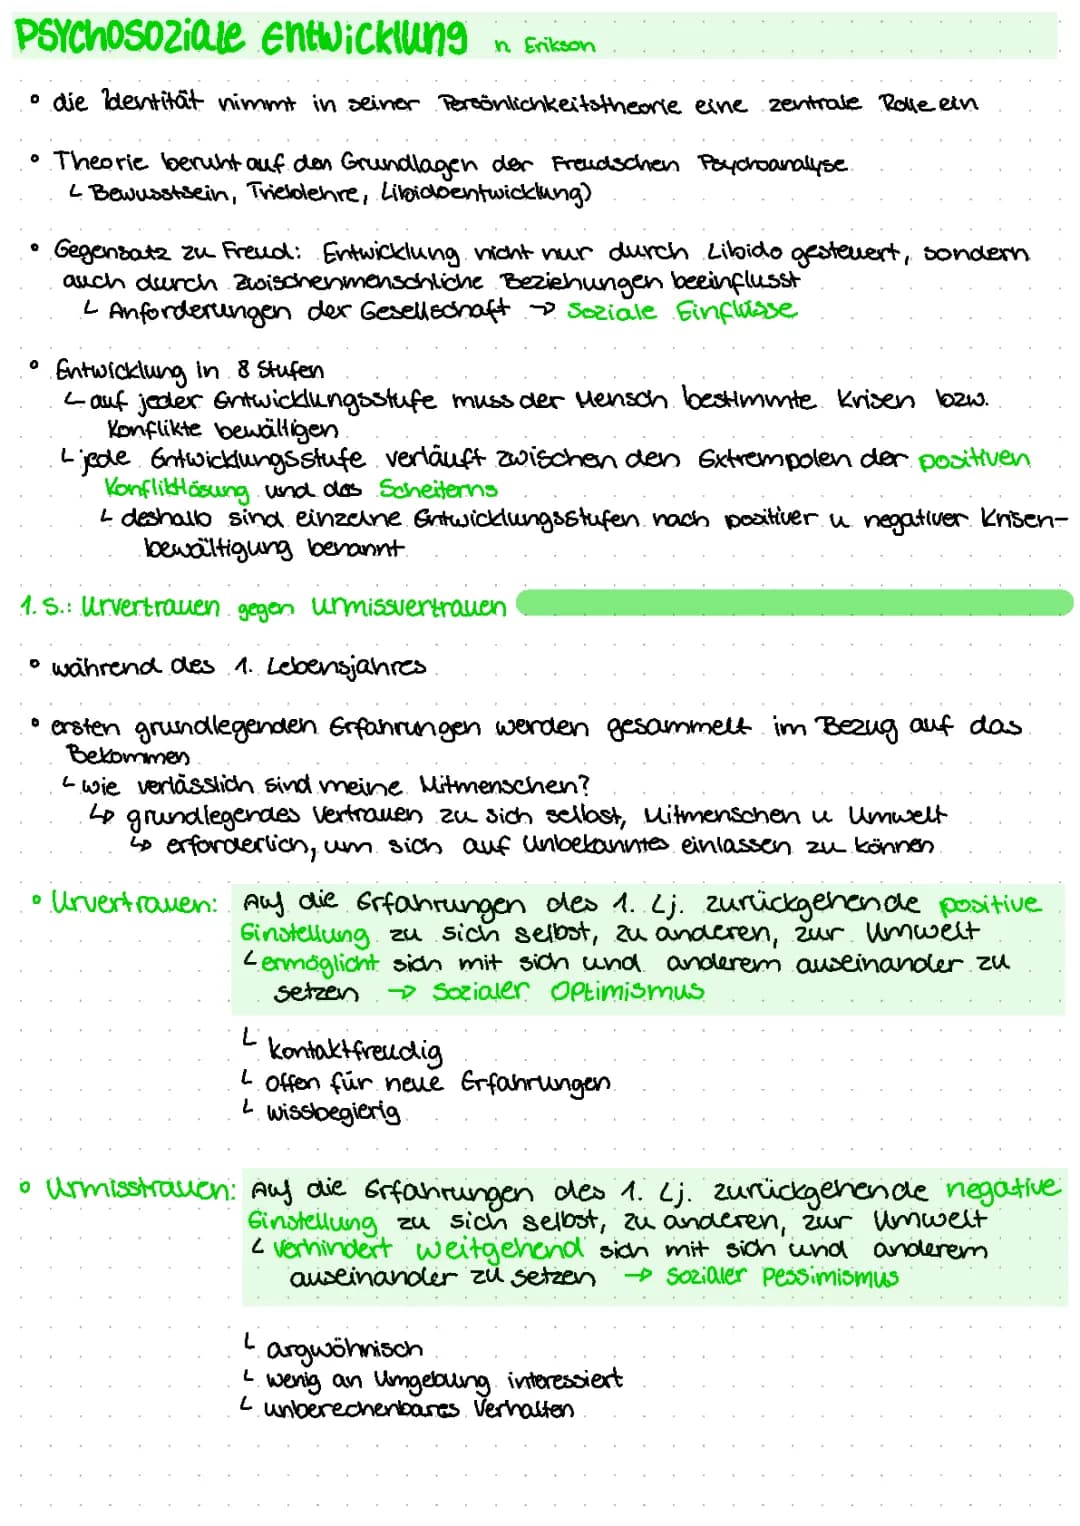 PSYCHOSOZIALE Entwicklung n. Erikson
• die Identität nimmt in seiner Persönlichkeitstheorie eine zentrale Rolle ein
• Theorie beruht auf den Grundlagen der Freudschen Psychoanalyse
└ Bewusstsein, Trieblehre, Libidoentwicklung)
• Gegensatz zu Freud: Entwicklung nicht nur durch Libido gesteuert, sondern
auch durch zwischenmenschliche Beziehungen beeinflusst
└ Anforderungen der Gesellschaft → Soziale Einflüsse
• Entwicklung in 8 Stufen
└ auf jeder Entwicklungsstufe muss der Mensch bestimmte Krisen bzw.
Konflikte bewältigen
└ jede Entwicklungsstufe verläuft zwischen den Extrempolen der positiven
Konfliktlösung und des Scheiterns
└ deshalb sind einzelne Entwicklungsstufen nach positiver u negativer Krisen-
bewältigung benannt
1. S.: Urvertrauen gegen Urmissvertrauen
• während des 1. Lebensjahres
• ersten grundlegenden Erfahrungen werden gesammelt im Bezug auf das
Bekommen
└ wie verlässlich sind meine Mitmenschen?
↳ grundlegendes Vertrauen zu sich selbst, Mitmenschen u Umwelt
↳ erforderlich, um sich auf Unbekanntes einlassen zu können
• Urvertrauen: Auf die Erfahrungen des 1. Lj. zurückgehende positive
Einstellung zu sich selbst, zu anderen, zur Umwelt
└ ermöglicht sich mit sich und anderem auseinander zu
setzen → Sozialer Optimismus
└ kontaktfreudig
└ offen für neue Erfahrungen
└ wissbegierig
• Urmisstrauen: Auf die Erfahrungen des 1. Lj. zurückgehende negative
Einstellung zu sich selbst, zu anderen, zur Umwelt
└ verhindert weitgehend sich mit sich und anderem
auseinander zu setzen → Sozialer Pessimismus
└ argwöhnisch
└ wenig an Umgebung interessiert
└ unberechenbares Verhalten